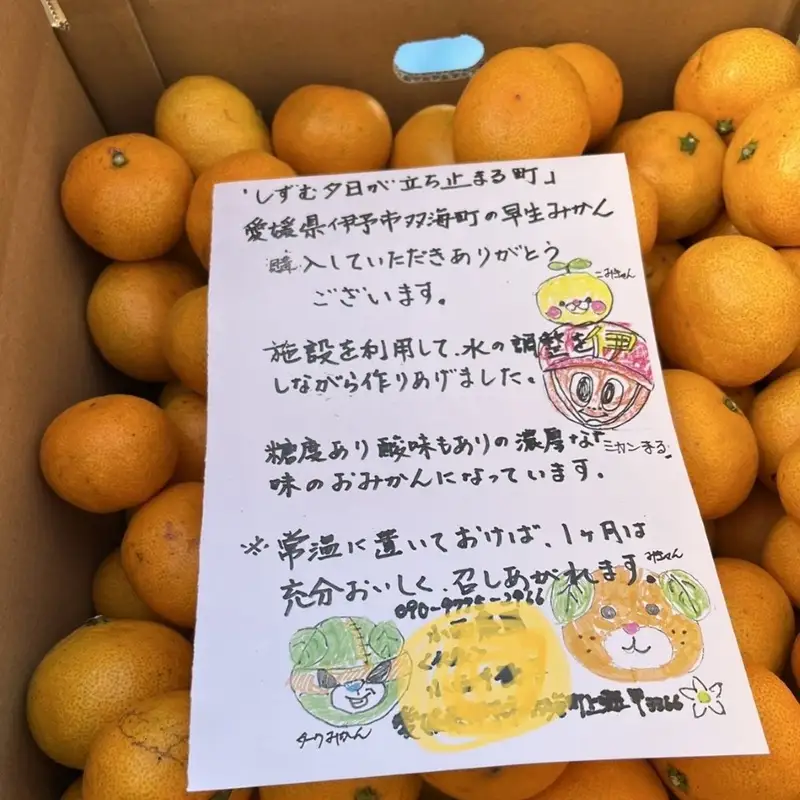 「しずむ夕日が立ち止まる町」
愛媛県伊予市双海町の早生みかん
購入していただきありがとう
ございます。
こみきゃん
施設を利用して、水の調整を
しながら作りあげました。
伊
糖度あり酸味もありの濃厚な
ミカンまる
味のおみかんになっています。
※常温に置いておけば、1ヶ月は
みきゃん
充分おいしく、召しあがれます。
ダークみかん